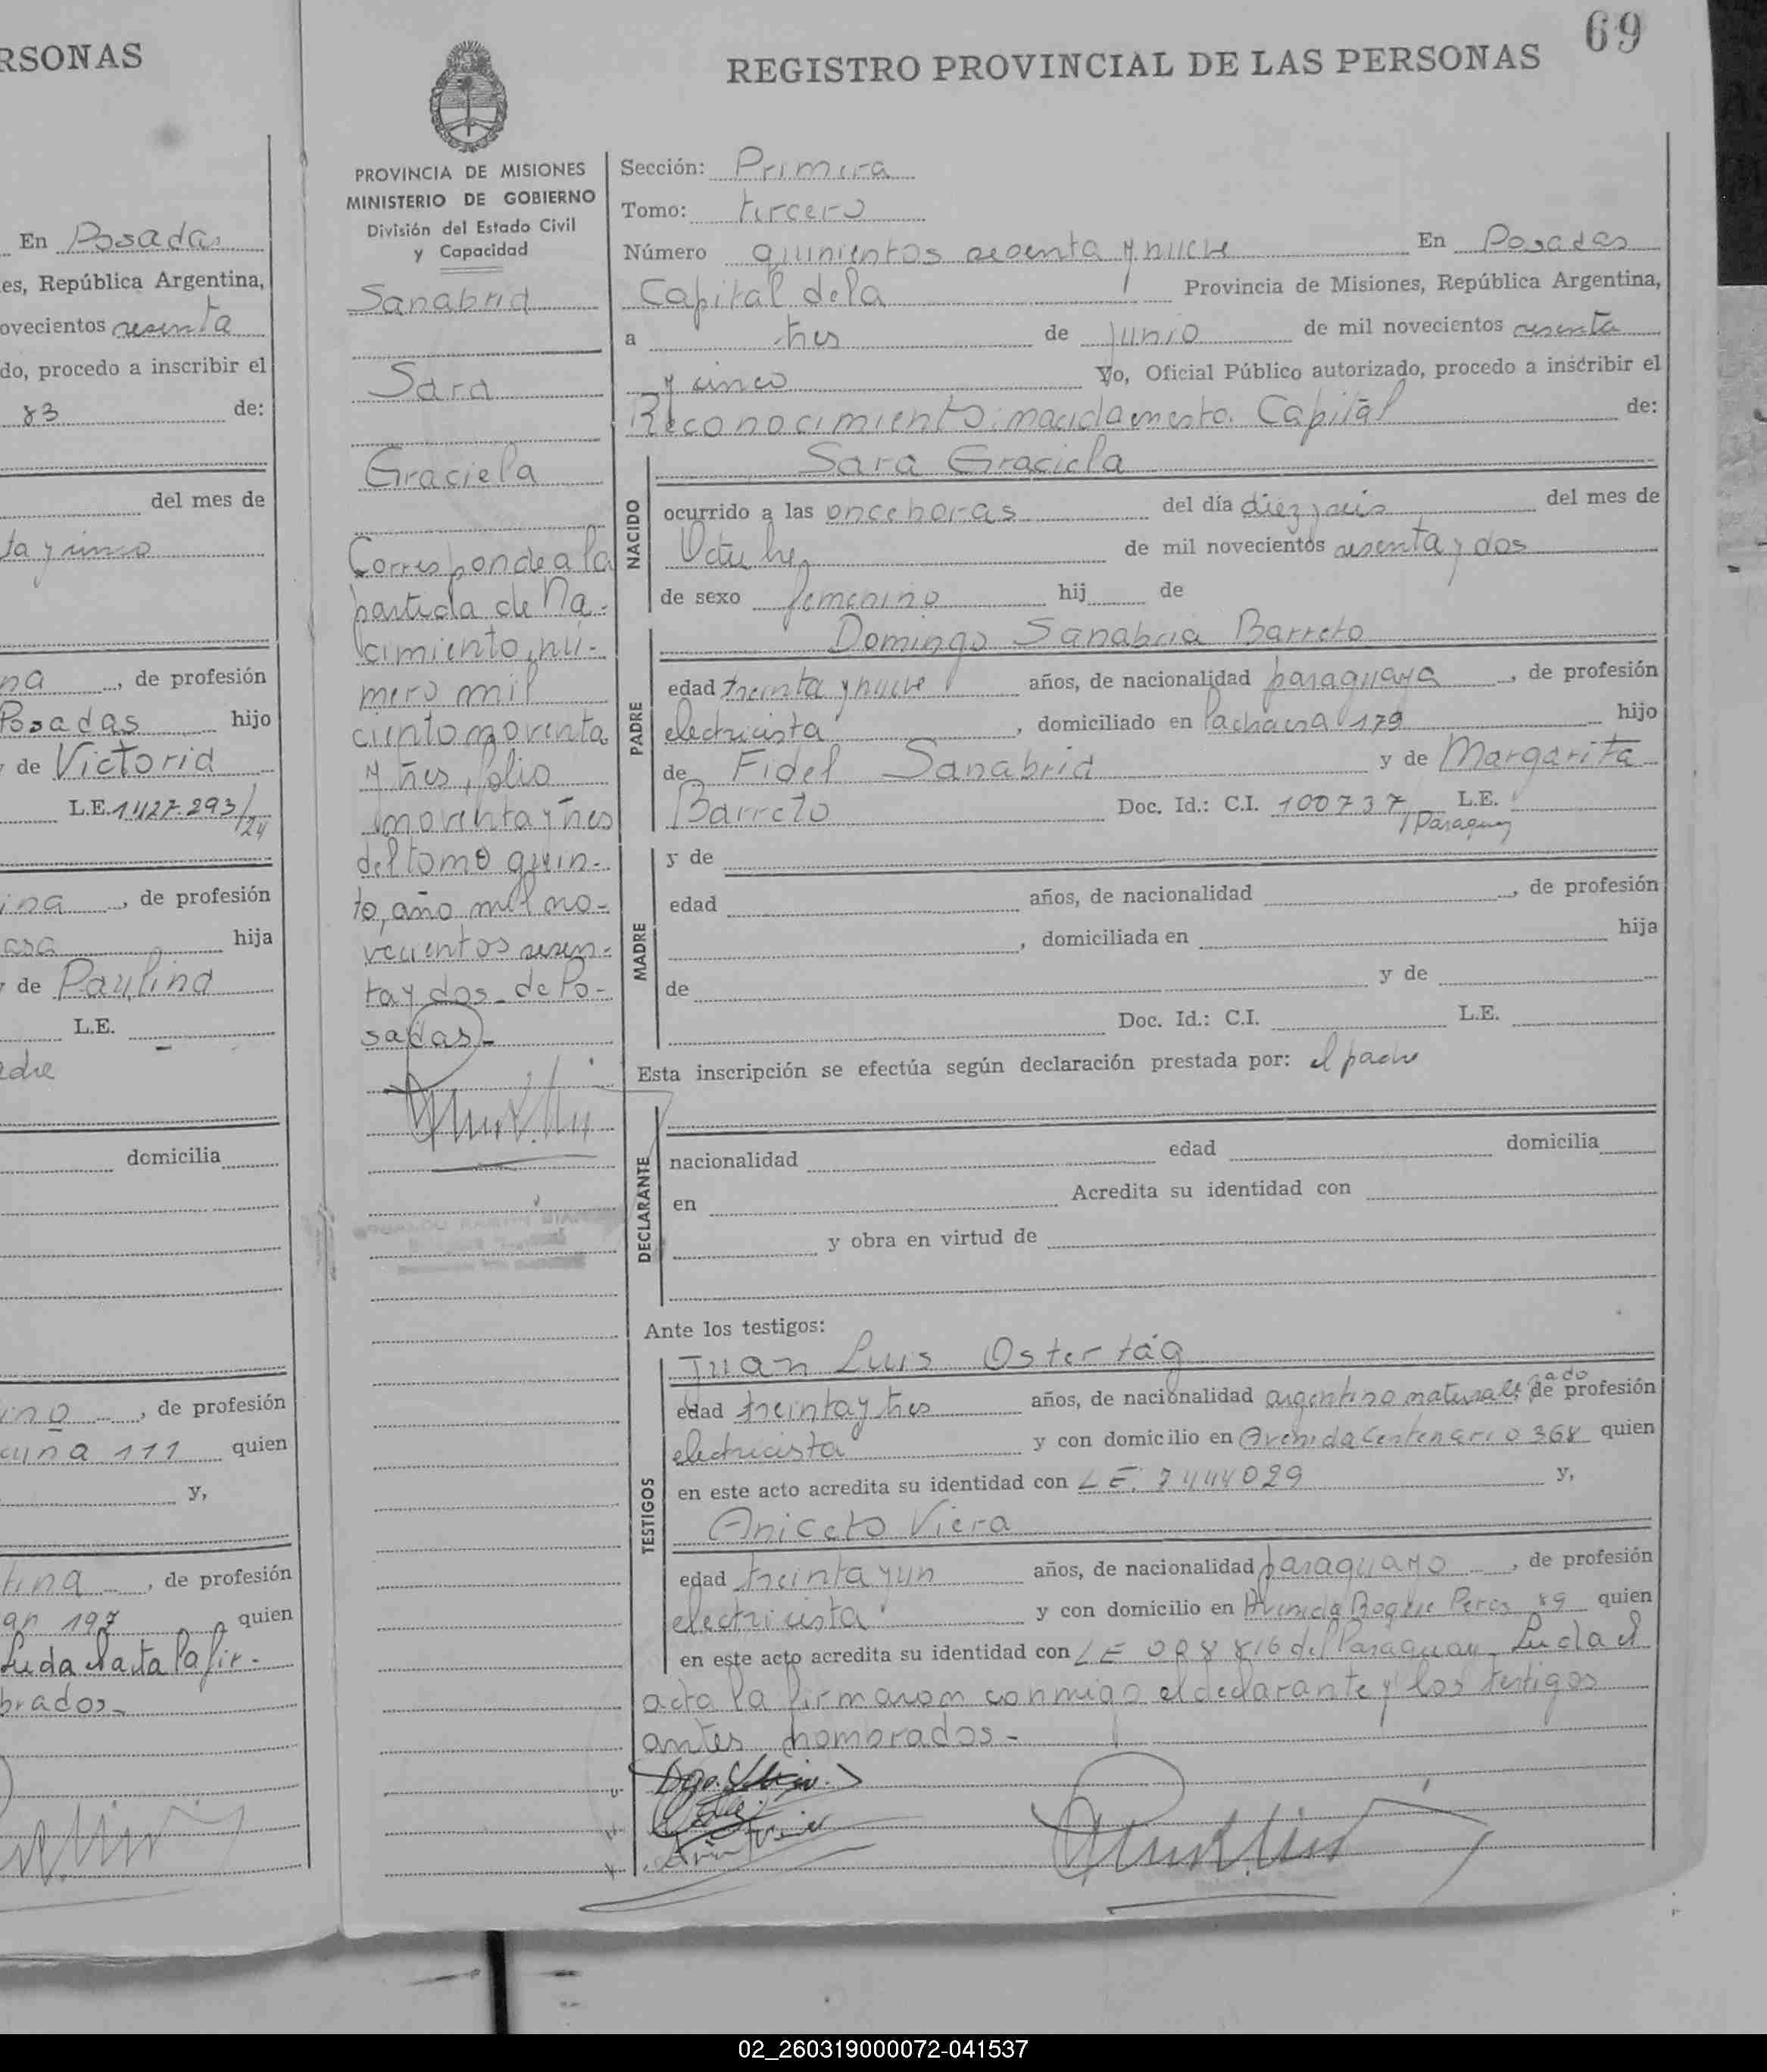 RSONAS
En Posadas
es, República Argentina,
ovecientos sesenta
do, procedo a inscribir el
83 de:
del mes de
ta y cinco
na, de profesión
Posadas hijo
de Victoria
L.E. 1427.293/24
ina, de profesión
casa hija
y de Paulina
L.E.
adre
domicilia
ino, de profesión
111 quien
y,
tina, de profesión
197 quien
Leida el acta la fir-
brados-
69
REGISTRO PROVINCIAL DE LAS PERSONAS
PROVINCIA DE MISIONES
MINISTERIO DE GOBIERNO
División del Estado Civil
y Capacidad
Sanabria
Sara
Graciela
Corresponde a la
partida de Na-
cimiento, nú-
mero mil
ciento noventa
y tres, folio
noventa y tres
del tomo quin-
to, año mil no-
vecientos sesen-
ta y dos- de Po-
sadas-
Sección: Primera
Tomo: tercero
Número quinientos sesenta y nueve En Posadas
Capital de la Provincia de Misiones, República Argentina,
a tres de junio de mil novecientos sesenta
y cinco Yo, Oficial Público autorizado, procedo a inscribir el
Reconocimiento: nacidamento. Capital de:
NACIDO
Sara Graciela
ocurrido a las once horas del día diez y seis del mes de
Octubre de mil novecientos sesenta y dos
de sexo femenino hij de
PADRE
Domingo Sanabria Barreto
edad treinta y nueve años, de nacionalidad paraguaya, de profesión
electricista, domiciliado en Pachausa 179 hijo
de Fidel Sanabria y de Margarita
Barreto Doc. Id.: C.I. 100737 L.E.
/Paraguay
MADRE
y de
edad años, de nacionalidad, de profesión
, domiciliada en hija
de y de
Doc. Id.: C.I. L.E.
Esta inscripción se efectúa según declaración prestada por: el padre
DECLARANTE
nacionalidad edad domicilia
en Acredita su identidad con
y obra en virtud de
Ante los testigos:
TESTIGOS
Juan Luis Ostertág
edad treinta y tres años, de nacionalidad argentino naturalizado, de profesión
electricista y con domicilio en Avenida Centenario 368 quien
en este acto acredita su identidad con LE. 7444029 y,
Aniceto Viera
edad treinta y un años, de nacionalidad paraguayo, de profesión
electricista y con domicilio en Avenida Roque Peres 89 quien
en este acto acredita su identidad con LE 008816 del Paraguay- Leida el
acta la firmaron conmigo el declarante y los testigos
antes nombrados-
02_260319000072-041537